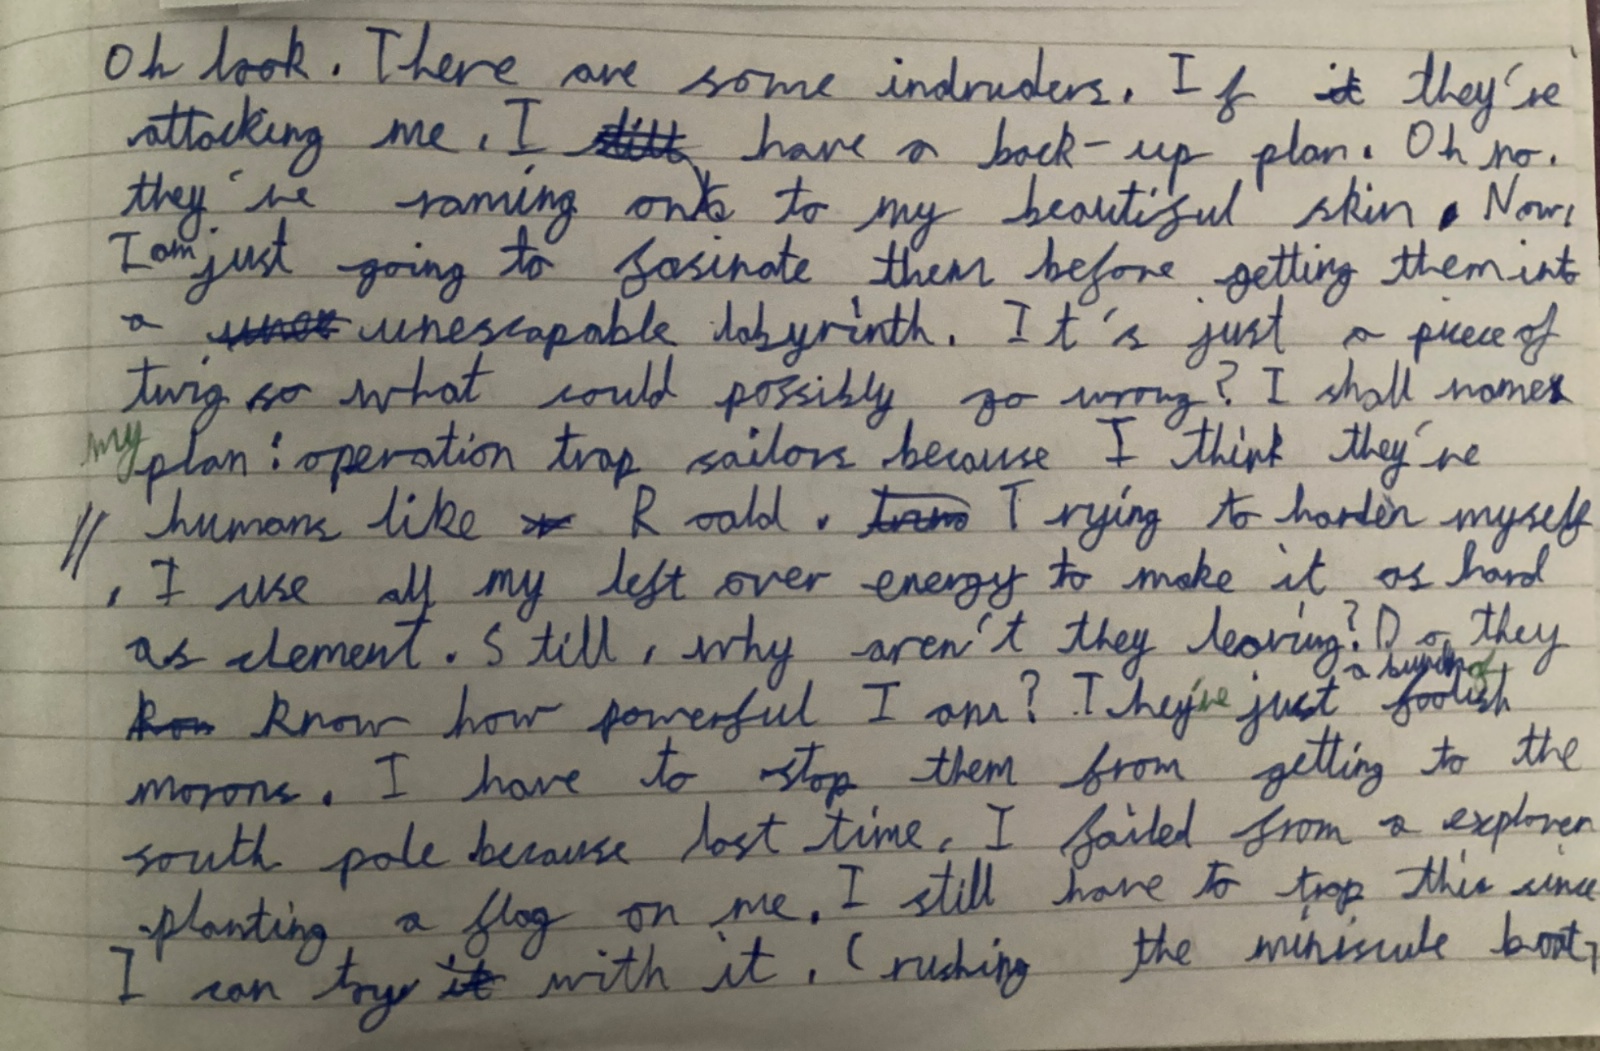 Oh look. There are some indruders. If they're
attacking me, I have a back-up plan. Oh no.
they're raming onto to my beautiful skin. Now,
I am just going to fasinate them before getting them into
a unescapable labyrinth. It's just a piece of
twig so what could possibly go wrong? I shall name
my plan: operation trap sailors because I think they're
humans like Roald. Trying to harden myself
, I use all my left over energy to make it as hard
as clement. Still, why aren't they leaving? Do they
know how powerful I am? They're just a bunch of foolish
morons. I have to stop them from getting to the
south pole because last time, I failed from a explorer
planting a flag on me. I still have to trap this since
I can try with it. Crushing the miniscule boat,